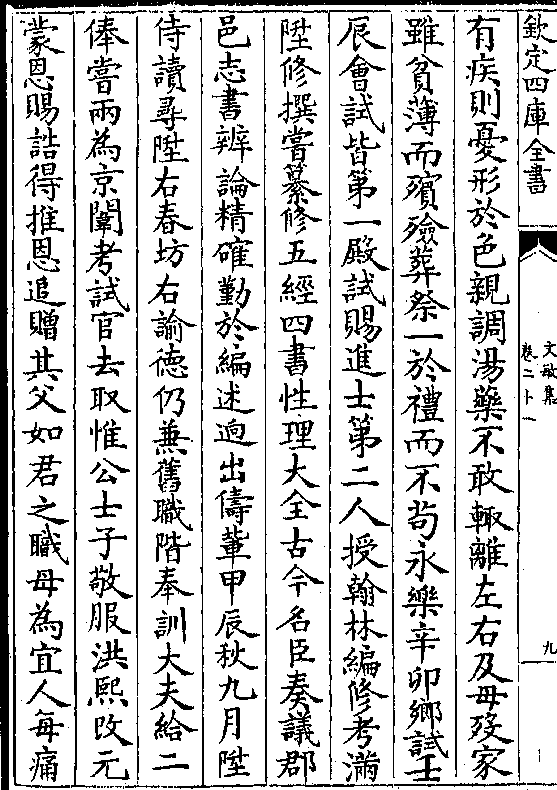 欽定四庫全書
文敏集
卷二十一
九
有疾則憂形於色親調湯藥不敢輙離左右及母歿家
雖貧薄而殯殮葬祭一於禮而不苟永樂辛卯鄉試壬
辰會試皆第一殿試賜進士第二人授翰林編修考滿
陞修撰嘗纂修五經四書性理大全古今名臣奏議郡
邑志書辨論精確勤於編述逈出儔軰甲辰秋九月陞
侍讀尋陞右春坊右諭德仍兼舊職階奉訓大夫給二
俸嘗兩為京闈考試官去取惟公士子敬服洪熙改元
蒙恩賜誥得推恩追贈其父如君之職母為宜人每痛